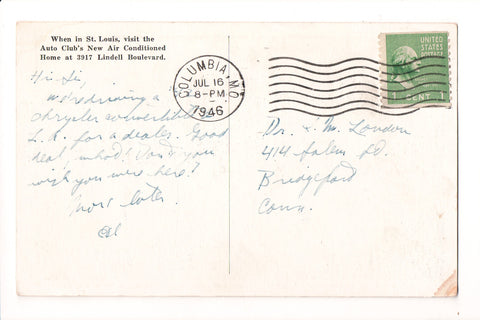 When in St. Louis, visit the
Auto Club's New Air Conditioned
Home at 3917 Lindell Boulevard.
COLUMBIA, MO.
JUL 16
8-PM
1946
UNITED
STATES
POSTAGE
1 CENT 1
Hi Si,
We're driving a
chrysler convertible
L.A. for a dealer. Good
deal, what! Don't you
wish you were here?
More later.
Al
Dr. & M. London
414 Salem
Bridgeford
Conn.